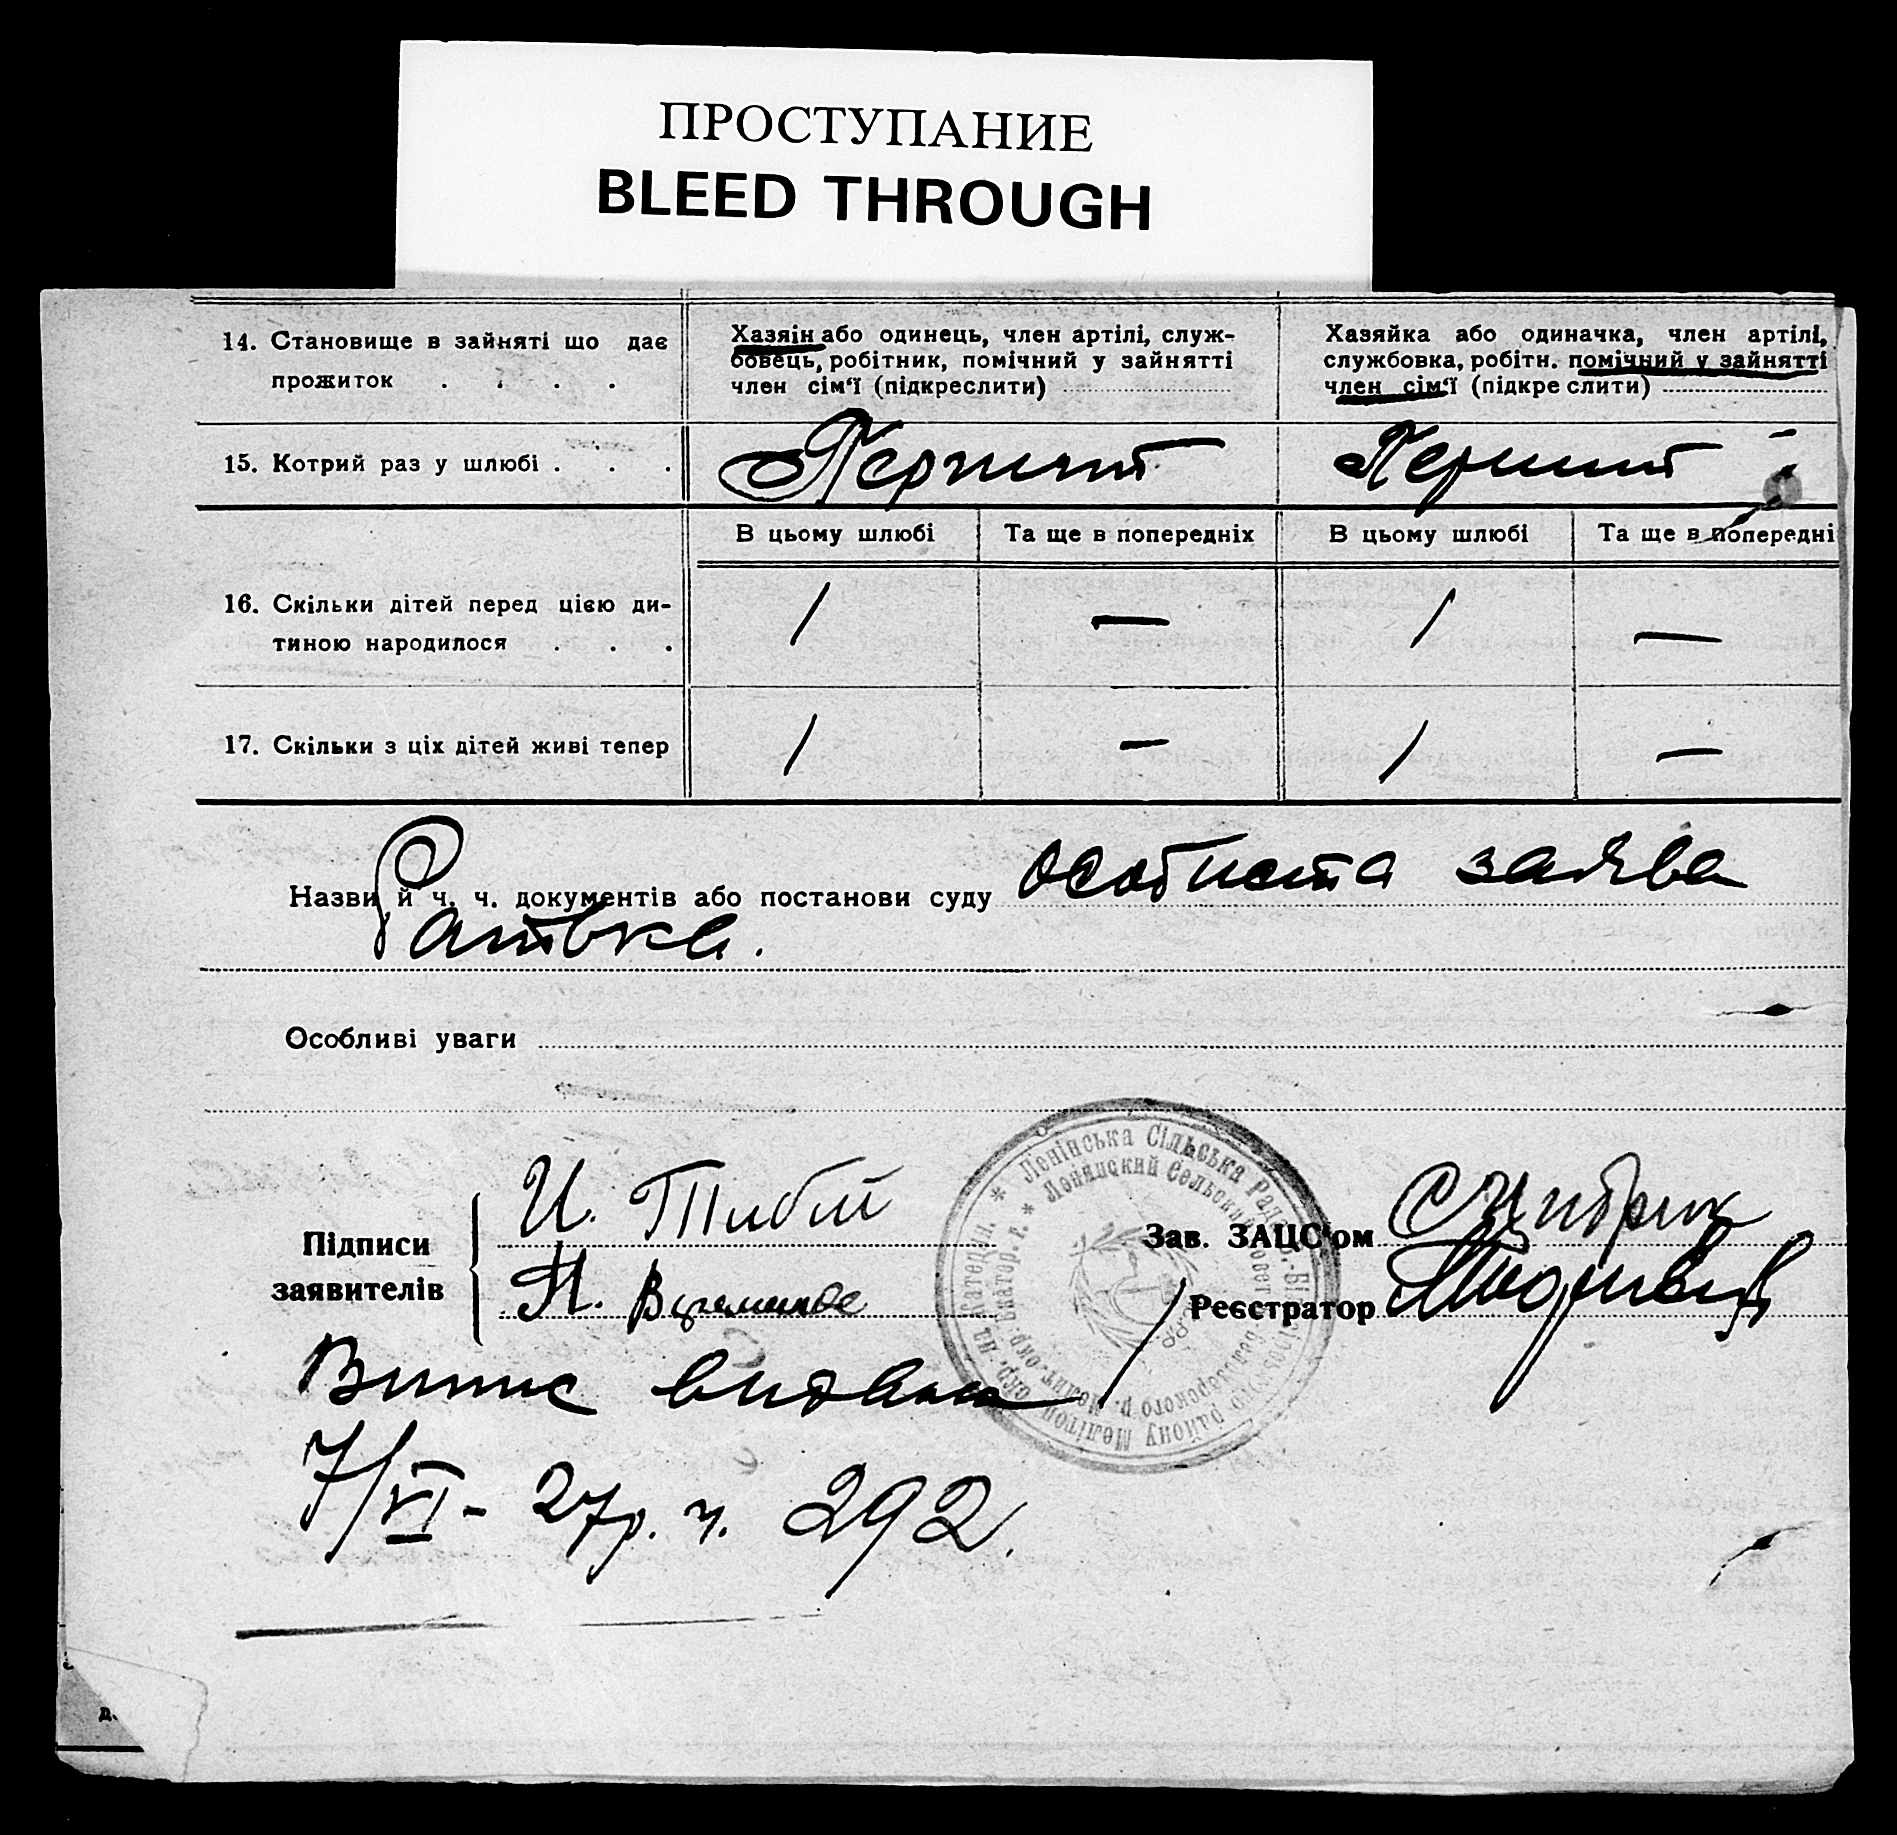 ПРОСТУПАНИЕ
BLEED THROUGH
14. Становище в зайняті що дає прожиток . . . .
Хазяін або одинець, член артілі, служ-
бовець, робітник, помічний у зайнятті
член сім'ї (підкреслити)
Хазяйка або одиначка, член артілі,
службовка, робітн. помічний у зайнятті
член сім'ї (підкреслити)
15. Котрий раз у шлюбі . . .
Перший
Перший
В цьому шлюбі
Та ще в попередніх
В цьому шлюбі
Та ще в попередні
16. Скільки дітей перед цією ди-
тиною народилося . . .
1 — 1 —
17. Скільки з ціх дітей живі тепер
1 — 1 —
Назви й ч. ч. документів або постанови суду особиста заява
батька.
Особливі уваги
Підписи
заявителів
И.
Зав. ЗАЦС'ом
Реєстратор
Ленінська Сільська Рада
Ленинский Сельский Совет
Випис видана
7/VI - 27р. ч. 292.